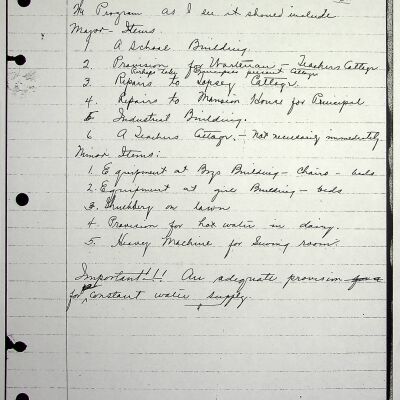 The Program as I see it should include
Major - Items.
1 A School Building
2. Provision for Warleman - Teachers Cottage
Perhaps take Principals present Cottage
3. Repairs to Cottage.
4. Repairs to Mansion House for Principal
5 Industrial Building.
6 A Teachers Cottage. - Not necessary immediately
Minor Items:
1. Equipment at Boys Building - Chairs - beds
2. Equipment at girl Building - beds
3 Shrubberg on lawn
4. Provision for hot water in dairy.
5. Heavey Machine for Sewing room.
Important!!!! An adequate provision for a
for constant water supply.